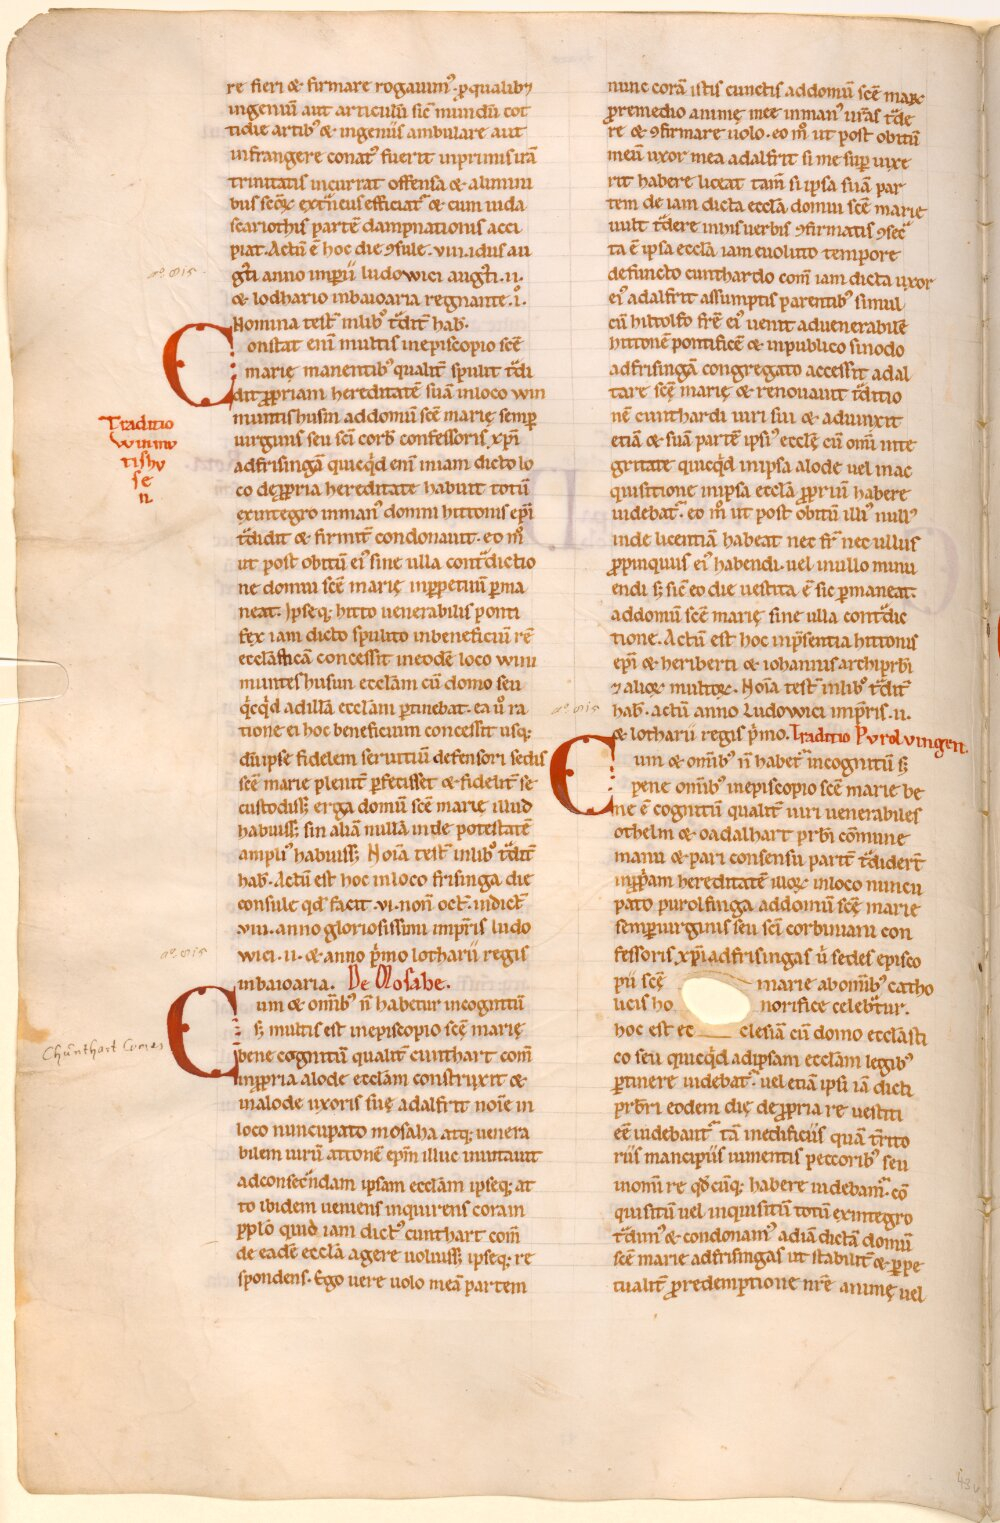 re fieri & firmare rogauim᷒· ꝑqualibꝫ
ingeniū aut articulū sic̄ mundū cot
tidie artib᷒ & ingeniis ambulare aut
infrangere conat᷒ fuerit inprimis irā
trinitatis incurrat offensa & alimini
bus sc̄oꝝ ext̄neus efficiat᷒ & cum iuda
scariothis partē dampnationis acci
piat. Actū ē hoc die ꝯsule· viii· idus au
gt̄i anno imperii ludowici augt̄i· ii·
& lodhario inbaioaria regnante· i·
Nomina test̄ inlib᷒ t̄dit̄ hab̄·
Constat eni multis inepiscopio scē
marię manentib᷒ qualit̄ spulit t̄di
dit ꝓpriam hereditatē suā inloco win
muntishusin addomū scē marię semꝑ
uirginis seu sc̄i corb̄ confessoris xp̄i
adfrisingā quicq̇d eni iniam dicto lo
co deꝓpria hereditate habuit totū
exintegro inman᷒ domni hittonis ep̄i
t̄didit & firmit̄ condonauit· eo m̊
ut post obitū ei᷒ sine ulla cont̄dictio
ne domui scē marię inꝑpetuū ꝑma
neat· Ipseqꝫ hitto uenerabilis ponti
fex iam dicto spulito inbeneficiū rē
ecclesiasticā concessit ineodē loco win
munteshusun ecclam cū domo seu
q̇cq̇d adillā ecclam ꝑtinebat· ea ů ra
tione ei hoc beneficium concessit usqꝫ
dūipse fidelem seruitiū defensori sedis
scē marie plenit̄ ꝑfecisset & fidelit̄ se
custodissꝫ erga domū scē marię illud
habuissꝫ sin aliā nullā inde potestatē
ampli᷒ habuissꝫ Noīa test̄ inlib᷒ t̄dit̄
hab̄· Actū est hoc inloco frisinga die
consule qd̄ facit· vi· non̄ oct̄· indict̄
viii· anno gloriosissimi imp̄ris ludo
wici· ii· & anno p̄mo lotharii regis
inbaioaria. De Mosahe.
Cum & omib᷒ n̄ habetur incognitū
sꝫ multis est inepiscopio scē marię
bene cognitū qualit̄ cunthart com̄
inꝓpria alode ecclam construxit &
inalode uxoris suę adalfrit noīe in
loco nuncupato mosaha atqꝫ uenera
bilem uirū attonē ep̄m illuc inuitauit
adconsec̄ndam ipsam ecclam ipseqꝫ at
to ibidem ueniens inquirens coram
pplo quid iam dict᷒ cunthart com̄
de eadē ecclā agere uoluissꝫ ipseqꝫ re
spondens· Ego uere uolo meā partem
Traditio
winmu
tishu
se
n
aͦ. 815.
aͦ. 815
Chunthart Comes
nunc corā istis cunctis addomū scē marię
ꝓremedio animę mee inman᷒ ur̄as t̄de
re & ꝯfirmare uolo· eo m̊ ut post obitū
meū uxor mea adalfrit si me suꝑ uixe
rit habere liceat tam̄ si ipsa suā par
tem de iam dicta ecclā domui scē marie
uult t̄dere inhis uerbis ꝯfirmatis ꝯsec̄
ta ē ipsa ecclā iam euoluto tempore
defuncto cunthardo com̄ iam dicta uxor
ei᷒ adalfrit assumptis parentib᷒ simul
cū hiltolfo fr̄e ei᷒ uenit aduenerabilē
hittonē pontificē & inpublico sinodo
adfrisingā congregato accessit adal
tare scē marię & renouauit t̄ditio
nē cunthardi uiri sui & adiunxit
etiā & suā partē ipsi᷒ ecclę cū om̄i inte
gritate quicq̇d inipsa alode uel inac
quisitione inipsa ecclā ꝓpriū habere
uidebat᷒· eo m̊ ut post obitū illi᷒ null᷒
inde licentiā habeat nec fr̄ nec ullus
ꝓpinquus ei᷒ habendi· uel inullo minu
endi sꝫ sic̄ eo die uestita ē sic ꝑmaneat·
addomū scē marię sine ulla cont̄dic
tione· Actū est hoc inp̄sentia hittonis
ep̄i & heriberti & iohannis archiprb̄i
⁊ alioꝝ multoꝝ· Noīa test̄ inlib᷒ t̄dit̄
hab̄· actū anno Ludowici imp̄ris· ii·
& lotharii regis p̄mo. Traditio Purolvingen.
Cum & omib᷒ n̄ habet᷒ incognitū sꝫ
pene omib᷒ inepiscopio scē marie be
ne ē cognitū qualit̄ uiri uenerabiles
othelm & oadalhart prb̄i cōmune
manu & pari consensu parit̄ t̄didert̄
inꝓpam hereditatē illoꝝ inloco nuncu
pato purolfinga addomū scē marie
semꝑuirginis seu sc̄i corbiniani con
fessoris xp̄i adfrisingas ů sedes episco
pii scē marie abomib᷒ catho
licis ho norifice celebt̄ur.
hoc est ec clesiā cū domo ecclāsti
co seu quicq̇d adipsam ecclam legib᷒
ꝑtinere uidebat᷒· uel etiā ipsi iā dicti
prb̄ri eodem die deꝓpria re uestiti
eē uidebant᷒ tā inedificiis quā t̄rito
riis mancipiis iumentis peccorib᷒ seu
inomi re qd̄cūqꝫ habere uidebam᷒· cō
quisitū uel inquisitū totū exintegro
t̄dim᷒ & condonam᷒ adiā dictā domū
scē marie adfrisingas ut stabilit̄ & ꝑpe
tualit̄ ꝓredemptione nr̄e animę uel
aͦ. 815
43v